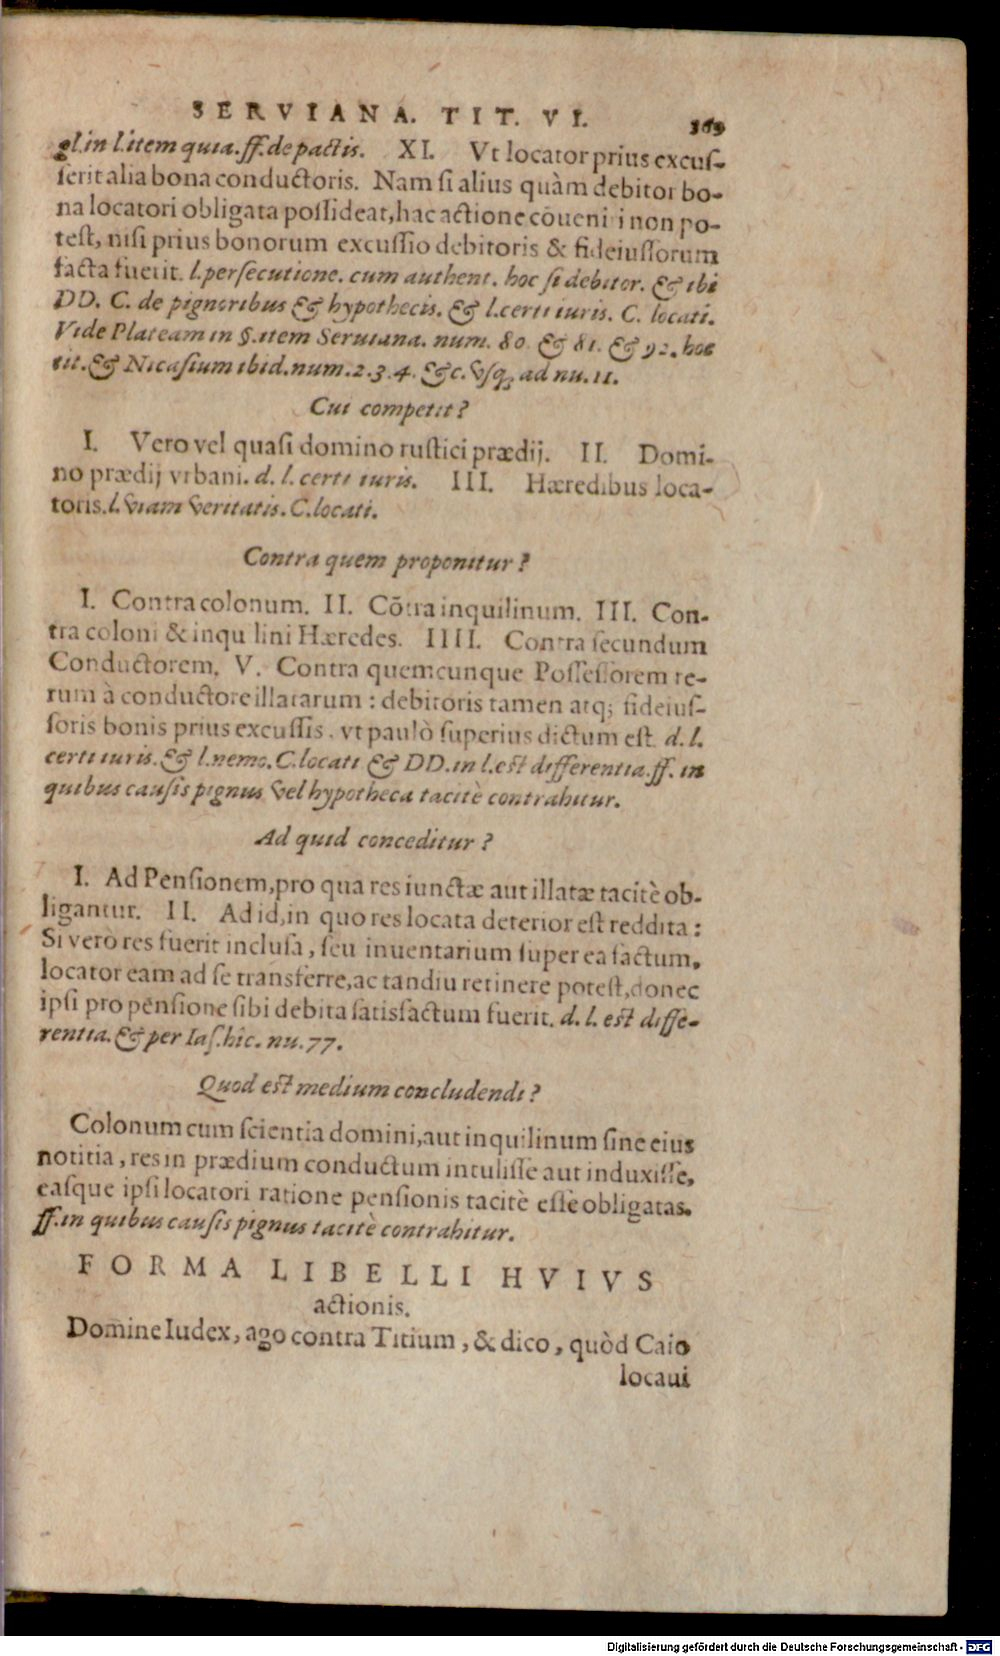 SERVIANA. TIT. VI. 369
gl. in l. item quia. ff. de pactis. XI. Vt locator prius excuſ-
ſerit alia bona conductoris. Nam ſi alius quàm debitor bo-
na locatori obligata poſſideat, hac actione cōueniri non po-
teſt, niſi prius bonorum excuſſio debitoris & fideiuſſorum
facta fuerit. l. perſecutione. cum authent. hoc ſi debitor. & ibi
DD. C. de pignoribus & hypothecis. & l. certi iuris. C. locati.
Vide Plateam in §. item Seruiana. num. 80. & 81. & 92. hoc
tit. & Nicaſium ibid. num. 2. 3. 4. &c. vſq; ad nu. 11.
Cui competit?
I. Vero vel quaſi domino ruſtici prædij. II. Domi-
no prædij vrbani. d. l. certi iuris. III. Hæredibus loca-
toris. l. viam veritatis. C. locati.
Contra quem proponitur?
I. Contra colonum. II. Cōtra inquilinum. III. Con-
tra coloni & inquilini Hæredes. IIII. Contra ſecundum
Conductorem. V. Contra quemcunque Poſſeſſorem re-
rum à conductore illatarum : debitoris tamen atq; fideiuſ-
ſoris bonis prius excuſſis. vt paulò ſuperius dictum eſt. d. l.
certi iuris. & l. nemo. C. locati & DD. in l. eſt differentia. ff. in
quibus cauſis pignus vel hypotheca tacitè contrahitur.
Ad quid conceditur?
I. Ad Penſionem, pro qua res iunctæ aut illatæ tacitè ob-
ligantur. II. Ad id, in quo res locata deterior eſt reddita :
Si verò res fuerit incluſa, ſeu inuentarium ſuper ea factum,
locator eam ad ſe transferre, ac tandiu retinere poteſt, donec
ipſi pro penſione ſibi debita ſatisfactum fuerit. d. l. eſt diffe-
rentia. & per Iaſ. hic. nu. 77.
Quod eſt medium concludendi?
Colonum cum ſcientia domini, aut inquilinum ſine eius
notitia, res in prædium conductum intuliſſe aut induxiſſe,
eaſque ipſi locatori ratione penſionis tacitè eſſe obligatas.
ff. in quibus cauſis pignus tacitè contrahitur.
FORMA LIBELLI HVIVS
actionis.
Domine Iudex, ago contra Titium, & dico, quòd Caio
locaui
Digitalisierung gefördert durch die Deutsche Forschungsgemeinschaft - DFG